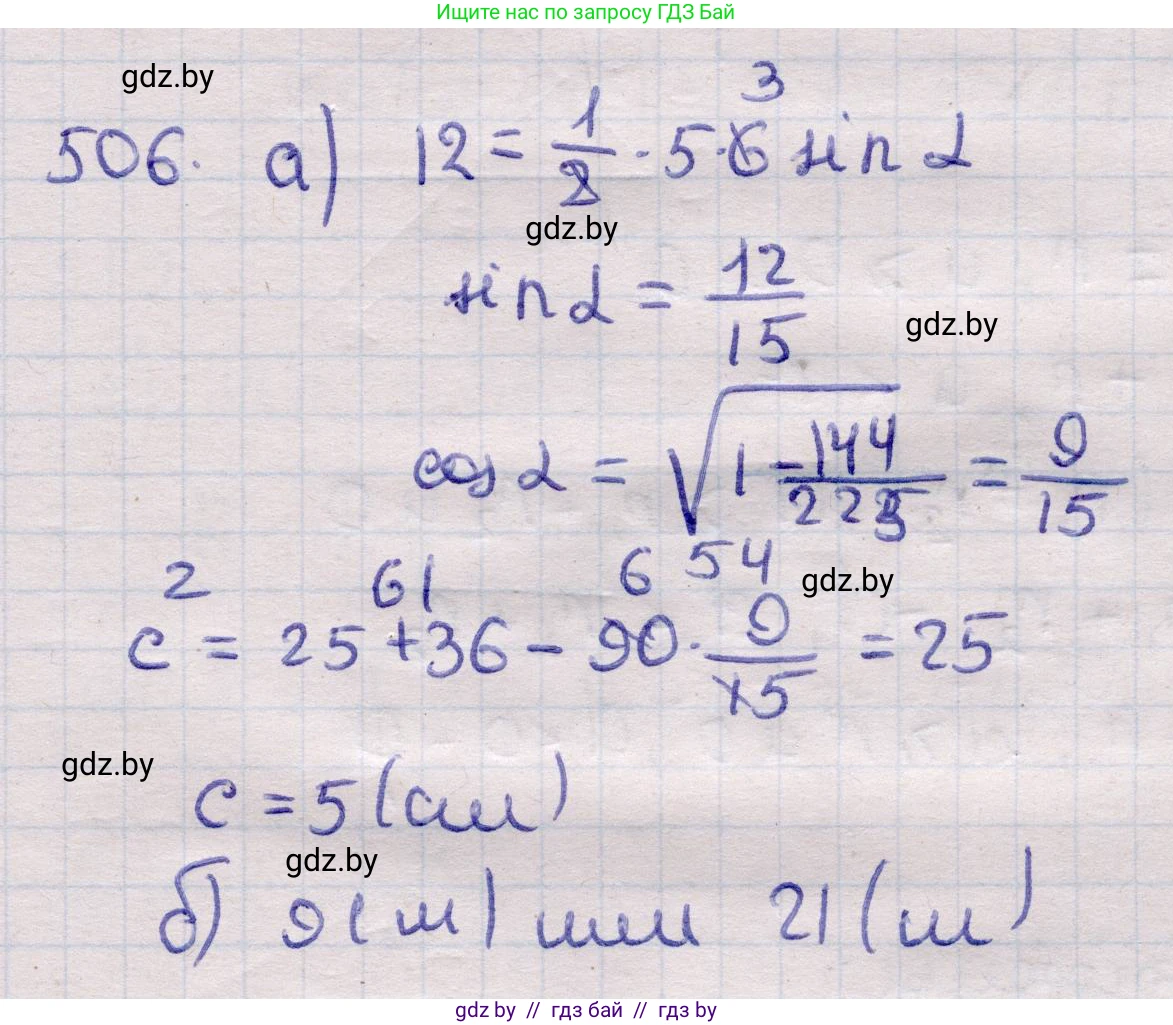 Ищите нас по запросу ГДЗ Бай
gdz.by
506. а) 12 = 1/2 · 5 · 6 sin α
3
gdz.by
sin α = 12/15
gdz.by
cos α = √(1 - 144/225) = 9/15
61 6 54
gdz.by
c² = 25 + 36 - 90 · 9/15 = 25
gdz.by
c = 5 (см)
gdz.by
б) 9 (м) или 21 (м)
gdz.by // гдз бай // gdz.by